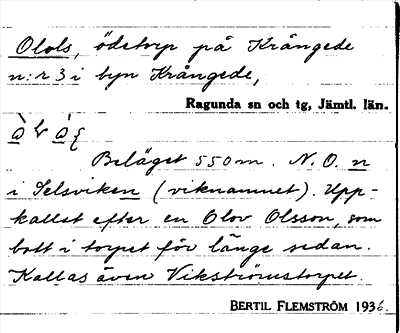 Olols, ödetorp på Krångede
n:r 3 i byn Krångede,
Ragunda sn och tg, Jämtl. län.
Beläget 550 m. N.O. n
i Selsviken (viknamnet). Upp-
kallat efter en Olov Olsson, som
bott i torpet för länge sedan.
Kallas även Vikströmstorpet.
BERTIL FLEMSTRÖM 1936.